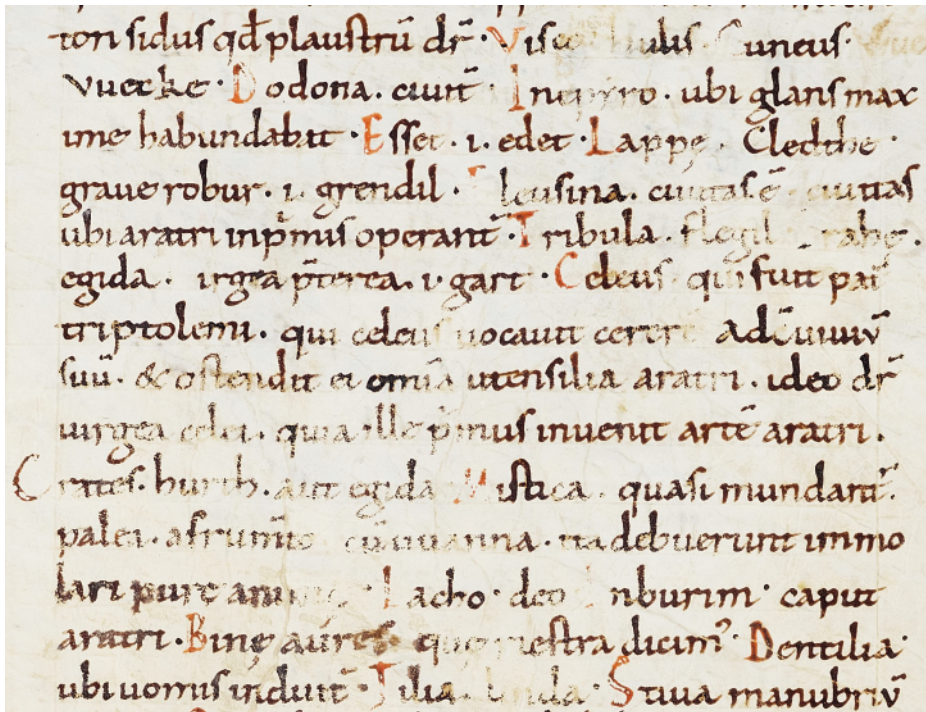 tori sidus qđ plaustrū dr̄. Viscū hulis. Cuneus.
vuecke. Dodona. ciuit̄ In epyro. ubi glans max
ime habundabat. Esset. i. edet. Lappę. Cledthe.
graue robur. i. grendil. Eleusina. ciuitas ē ciuitas
ubi aratri inp̄mis operant̄. Tribula. flegil
egida. irgea p̄terea. i. gart. Celeus qui fuit pat̄
triptolemi. qui celeus uocauit cererē Ad c̄uiuiū
suū. & ostendit ei omīa utensilia aratri. ideo dr̄
uirgea celei. quia ille p̄mus inuenit artē aratri.
Crates. hurth. aut egida Mistica. quasi mundant̄.
palei. a frum̄to cū uuanna. ita debuerunt immo
lari pure Iacho. deo Inburim. caput
aratri. Binę aures. quę riestra dicim̄. Dentilia
ubi uomis induit̄. Tilia. Stiua manubriū